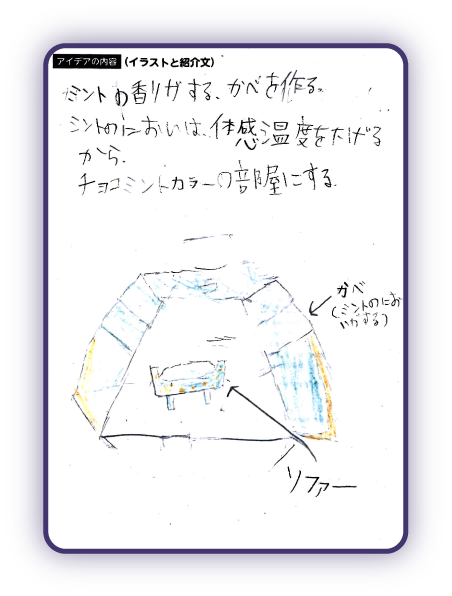 アイデアの内容 (イラストと紹介文)
ミントの香りがする、かべを作る。
ミントのにおいは、体感温度を下げる
から、
チョコミントカラーの部屋にする。
かべ
(ミントのにお
いがする)
ソファー